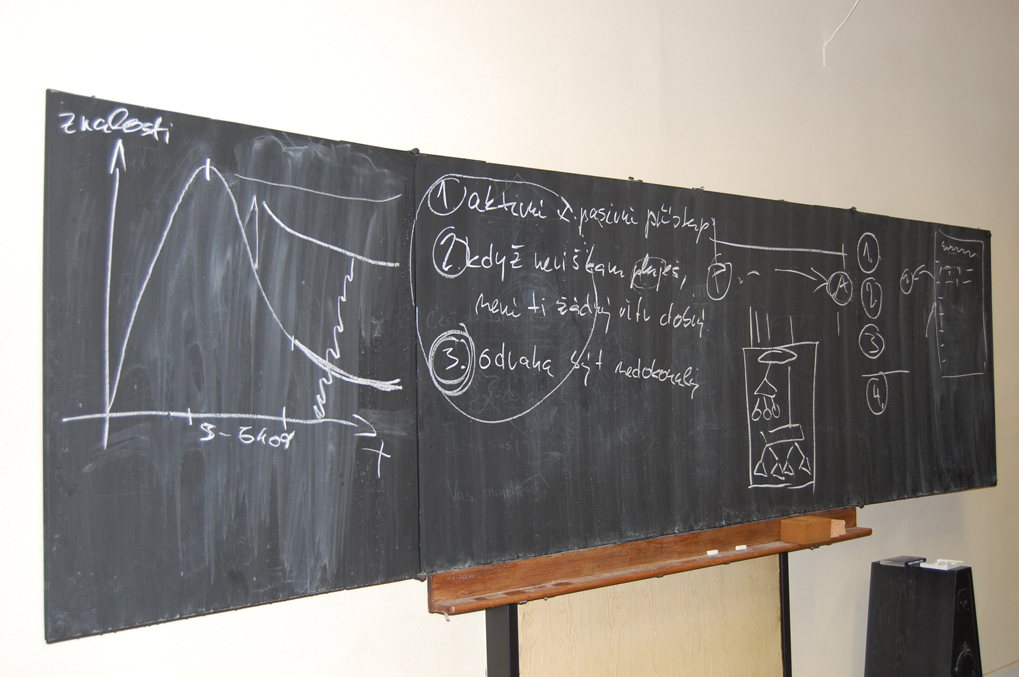 znalosti
t
1. aktivní x pasivní přístup
2. když nevíš kam pluješ,
není ti žádný vítr dobrý
3. odvaha být nedokonalý
A
1.
2.
3.
4.